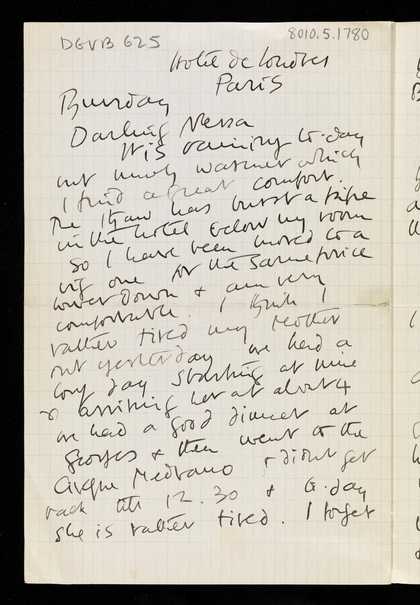 DGVB 625
8010.5.1780
Hotel de Londres
Paris
Thursday
Darling Nessa
It is raining to-day
but much warmer which
I find a great comfort.
The thaw has burst a pipe
in the hotel below my room
so I have been moved to a
big one for the same price
lower down & am very
comfortable. I think I
rather tired my Mother
out yesterday we had a
long day starting at nine
& arriving at about 4
we had a good dinner at
Georges & then went to the
Cirque Medrano & didnt get
back till 12.30 & to-day
she is rather tired. I forget